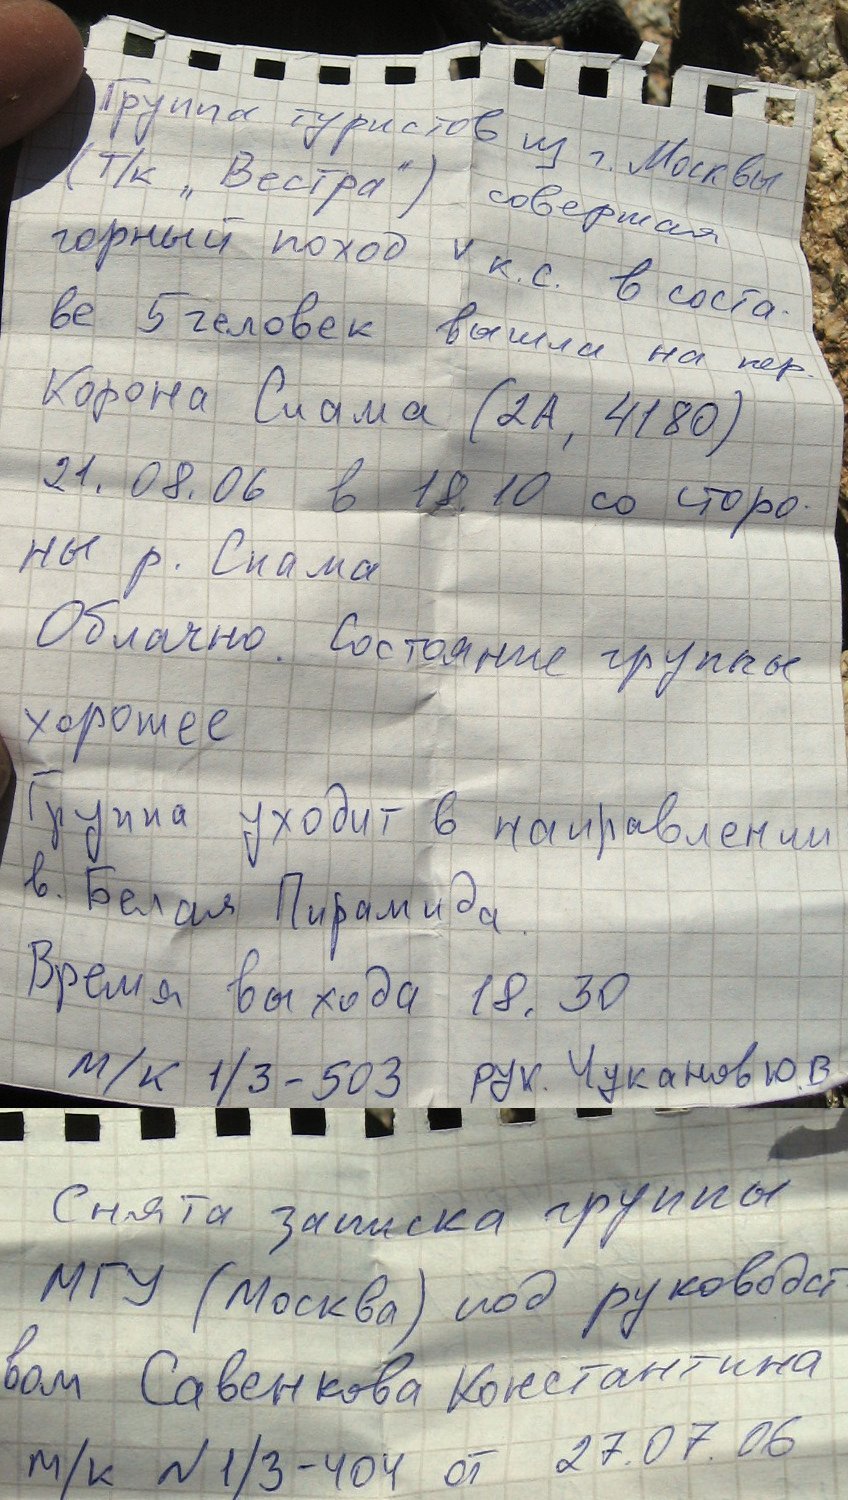 Группа туристов из г. Москвы
(т/к „Вестра") совершая
горный поход V к.с. в соста-
ве 5 человек вышла на пер.
Корона Снама (2А, 4180)
21.08.06 в 18.10 со сторо-
ны р. Снама
Облачно. Состояние группы
хорошее
Группа уходит в направлении
в. Белая Пирамида.
Время выхода 18.30
м/к 1/3-503 рук. Чуканов Ю.В
Снята записка группы
МГУ (Москва) под руководст-
вом Савенкова Константина
м/к N1/3-404 от 27.07.06